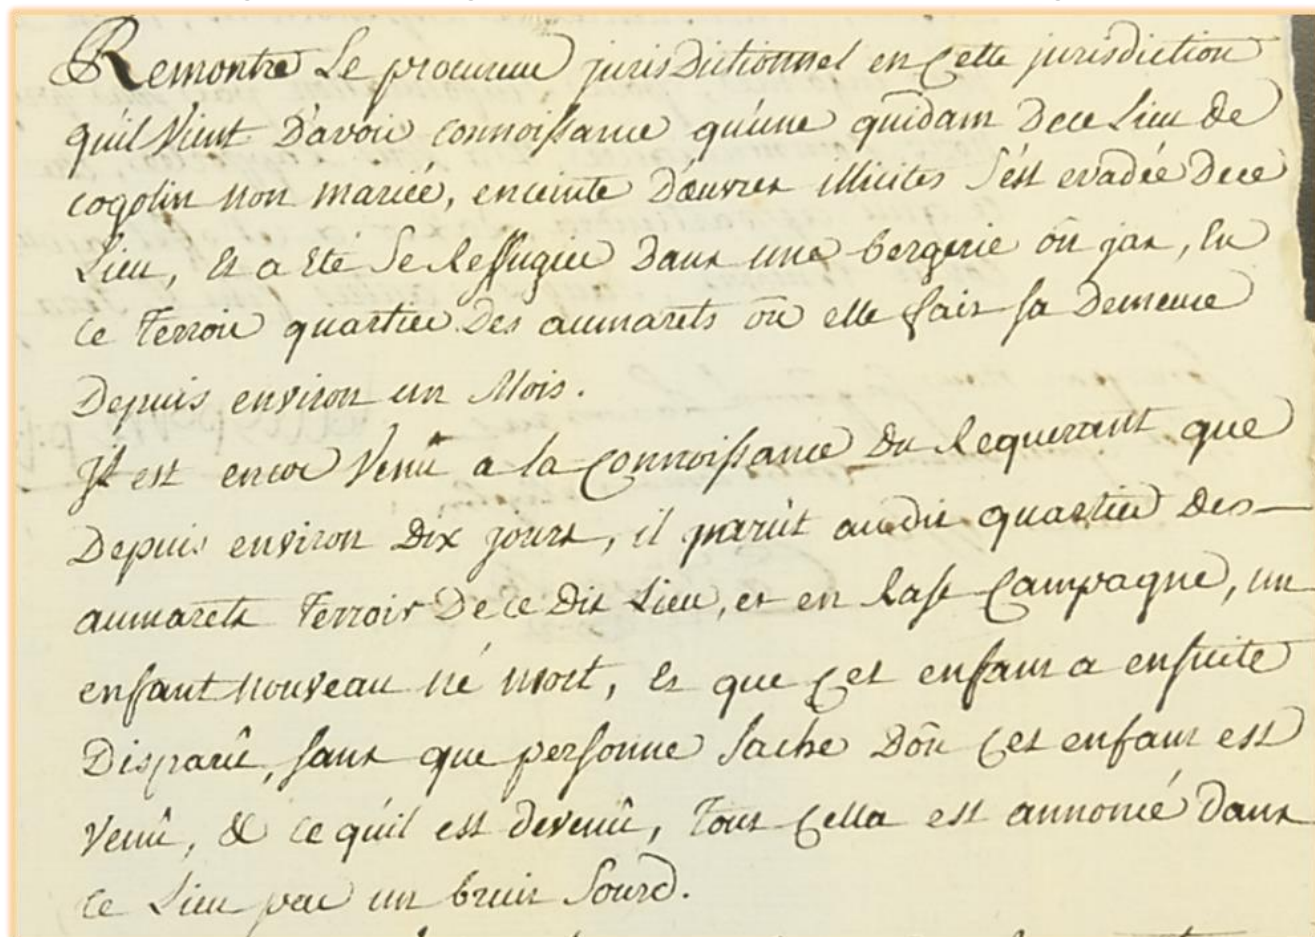 Remontre Le procureur jurisdictionnel en Cette jurisdiction
qu'il Vient D'avoir connoissance qu'une quidam De ce Lieu de
cogolin non mariée, enceinte D'œuvres illicites S'est evadée De ce
Lieu, Et a Eté Se Reffugier Dans une bergerie ou jas, En
ce Terroir quartier Des aumarets ou elle fait sa Demeure
Depuis environ un Mois.
Il est encor Venû a la Connoissance Du Requerant que
Depuis environ Dix jours, il parût audit quartier Des
aumarets Terroir De ce Dit Lieu, et en Rase Campagne, un
enfant nouveau né mort, Et que Cet enfant a ensuite
Disparû, sans que personne Sache Dou Cet enfant est
Venû, & ce qu'il est devenû, Tout Cella est annoncé Dans
ce Lieu par un bruit Sourd.